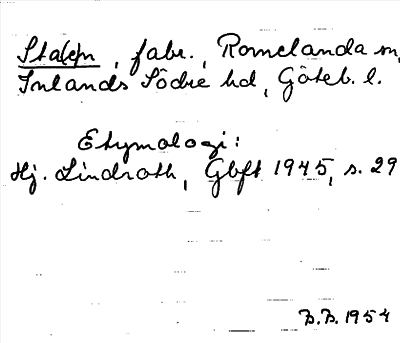 Sta(e)n, fabr., Romelanda sn,
Inlands Södre hd, Göteb. l.
Etymologi:
Hj. Lindroth, Gbft 1945, s. 29
B.B. 1954